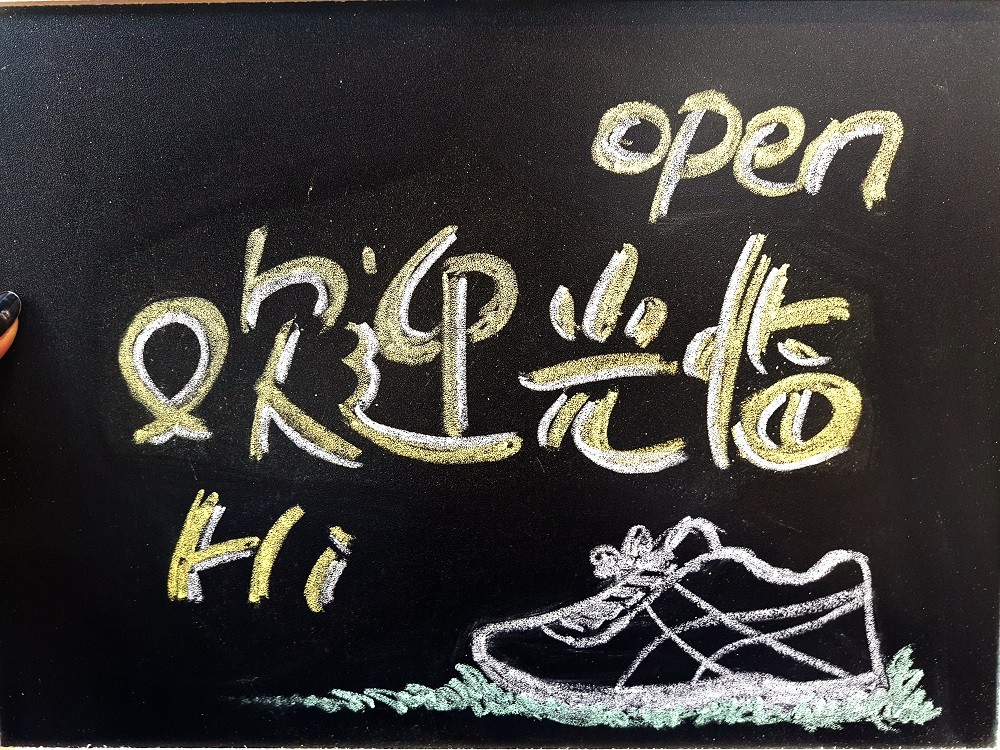 open
欢迎光临
Hi